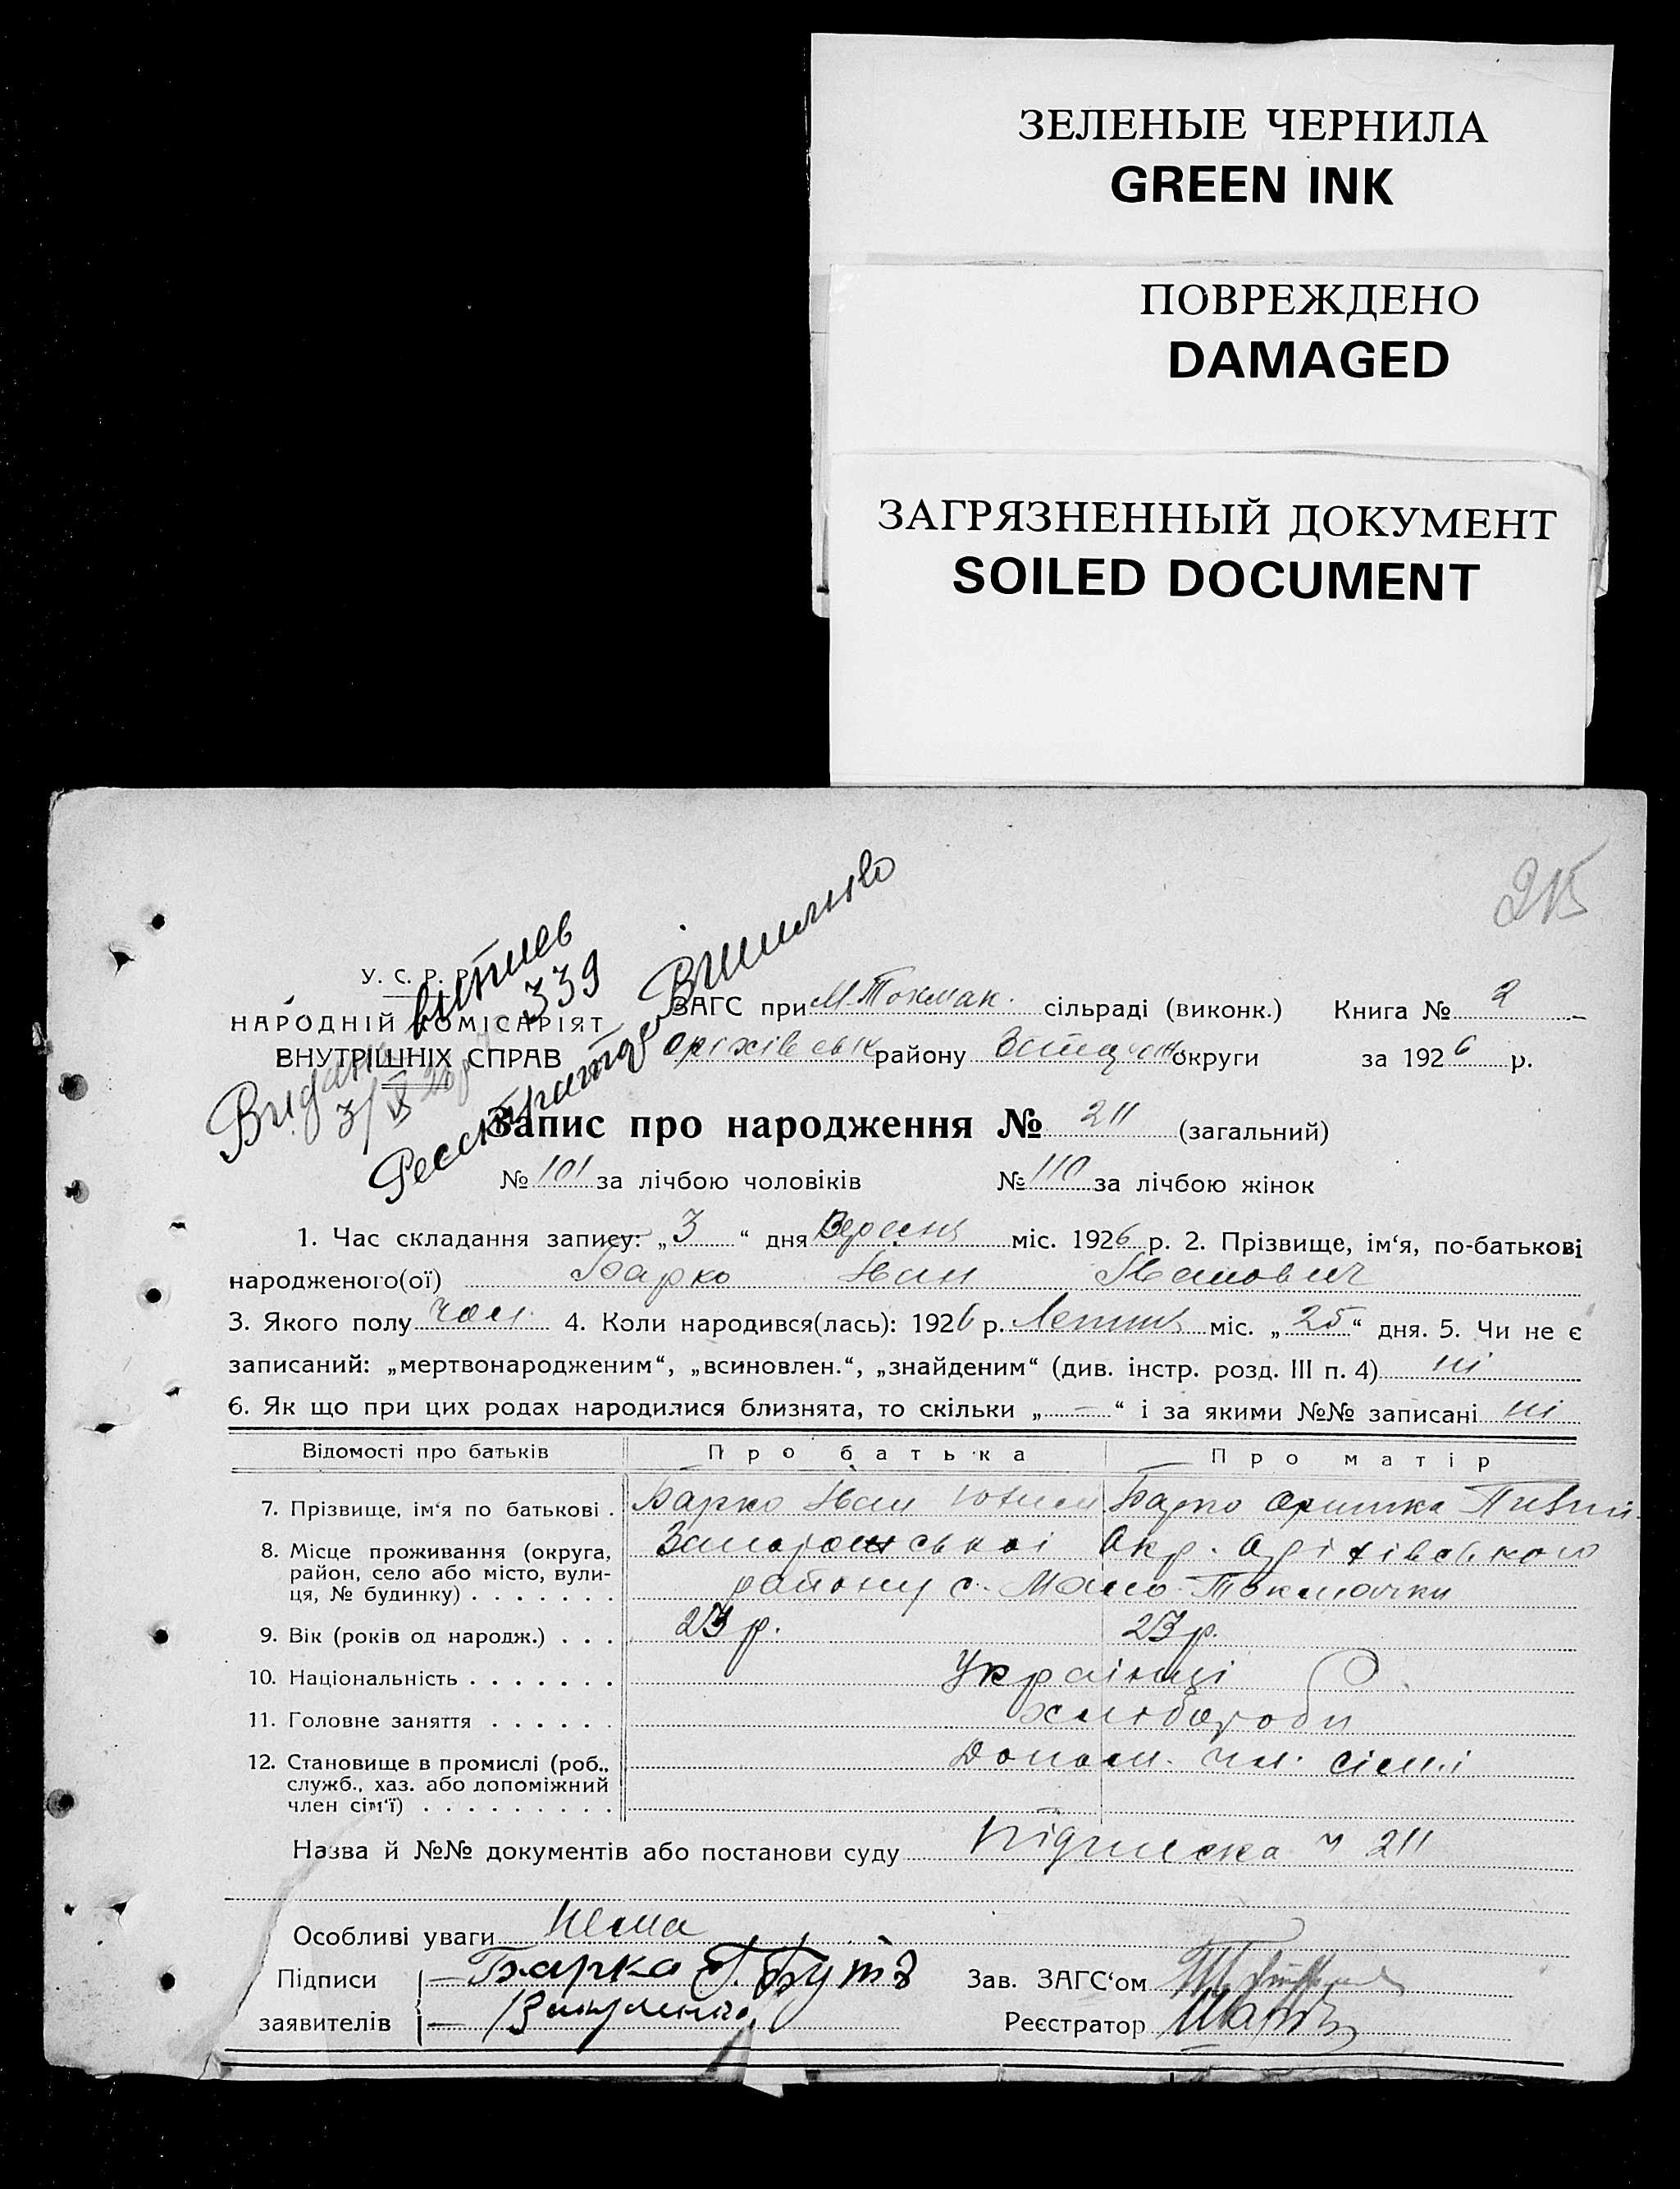 ЗЕЛЕНЫЕ ЧЕРНИЛА
GREEN INK
ПОВРЕЖДЕНО
DAMAGED
ЗАГРЯЗНЕННЫЙ ДОКУМЕНТ
SOILED DOCUMENT
У. С. Р. Р.
НАРОДНІЙ КОМІСАРІЯТ
ВНУТРІШНІХ СПРАВ
339
Видан
3/IX
ЗАГС при М. Токмак. сільраді (виконк.) Книга № 2
Оріхівськ району округи за 1926 р.
Запис про народження № 211 (загальний)
№ 101 за лічбою чоловіків № 110 за лічбою жінок
1. Час складання запису: „3“ дня Вересня міс. 1926 р. 2. Прізвище, ім‘я, по-батькові
народженого(ої) Барко Іван Іванович
3. Якого полу чол. 4. Коли народився(лась): 1926 р. міс. „25“ дня. 5. Чи не є
записаний: „мертвонародженим“, „всиновлен.“, „знайденим“ (див. інстр. розд. III п. 4) ні
6. Як що при цих родах народилися близнята, то скільки „—“ і за якими №№ записані ні
Відомості про батьків Про батька Про матір
7. Прізвище, ім‘я по батькові . Барко Іван Барко Оришка
8. Місце проживання (округа, Запорожської Окр. Оріхівського
район, село або місто, вули- району с. Мало-Токмачки
ця, № будинку) . . . . . . .
9. Вік (років од народж.) . . . 23 р. 23 р.
10. Національність . . . . . . . Українці
11. Головне заняття . . . . . . хлібороби
12. Становище в промислі (роб., Допом. чл. сіммі
служб., хаз. або допоміжний
член сім‘ї) . . . . . . . . .
Назва й №№ документів або постанови суду Підписка ч 211
Особливі уваги Нема
Підписи — Барка Зав. ЗАГС‘ом
заявителів — Реєстратор